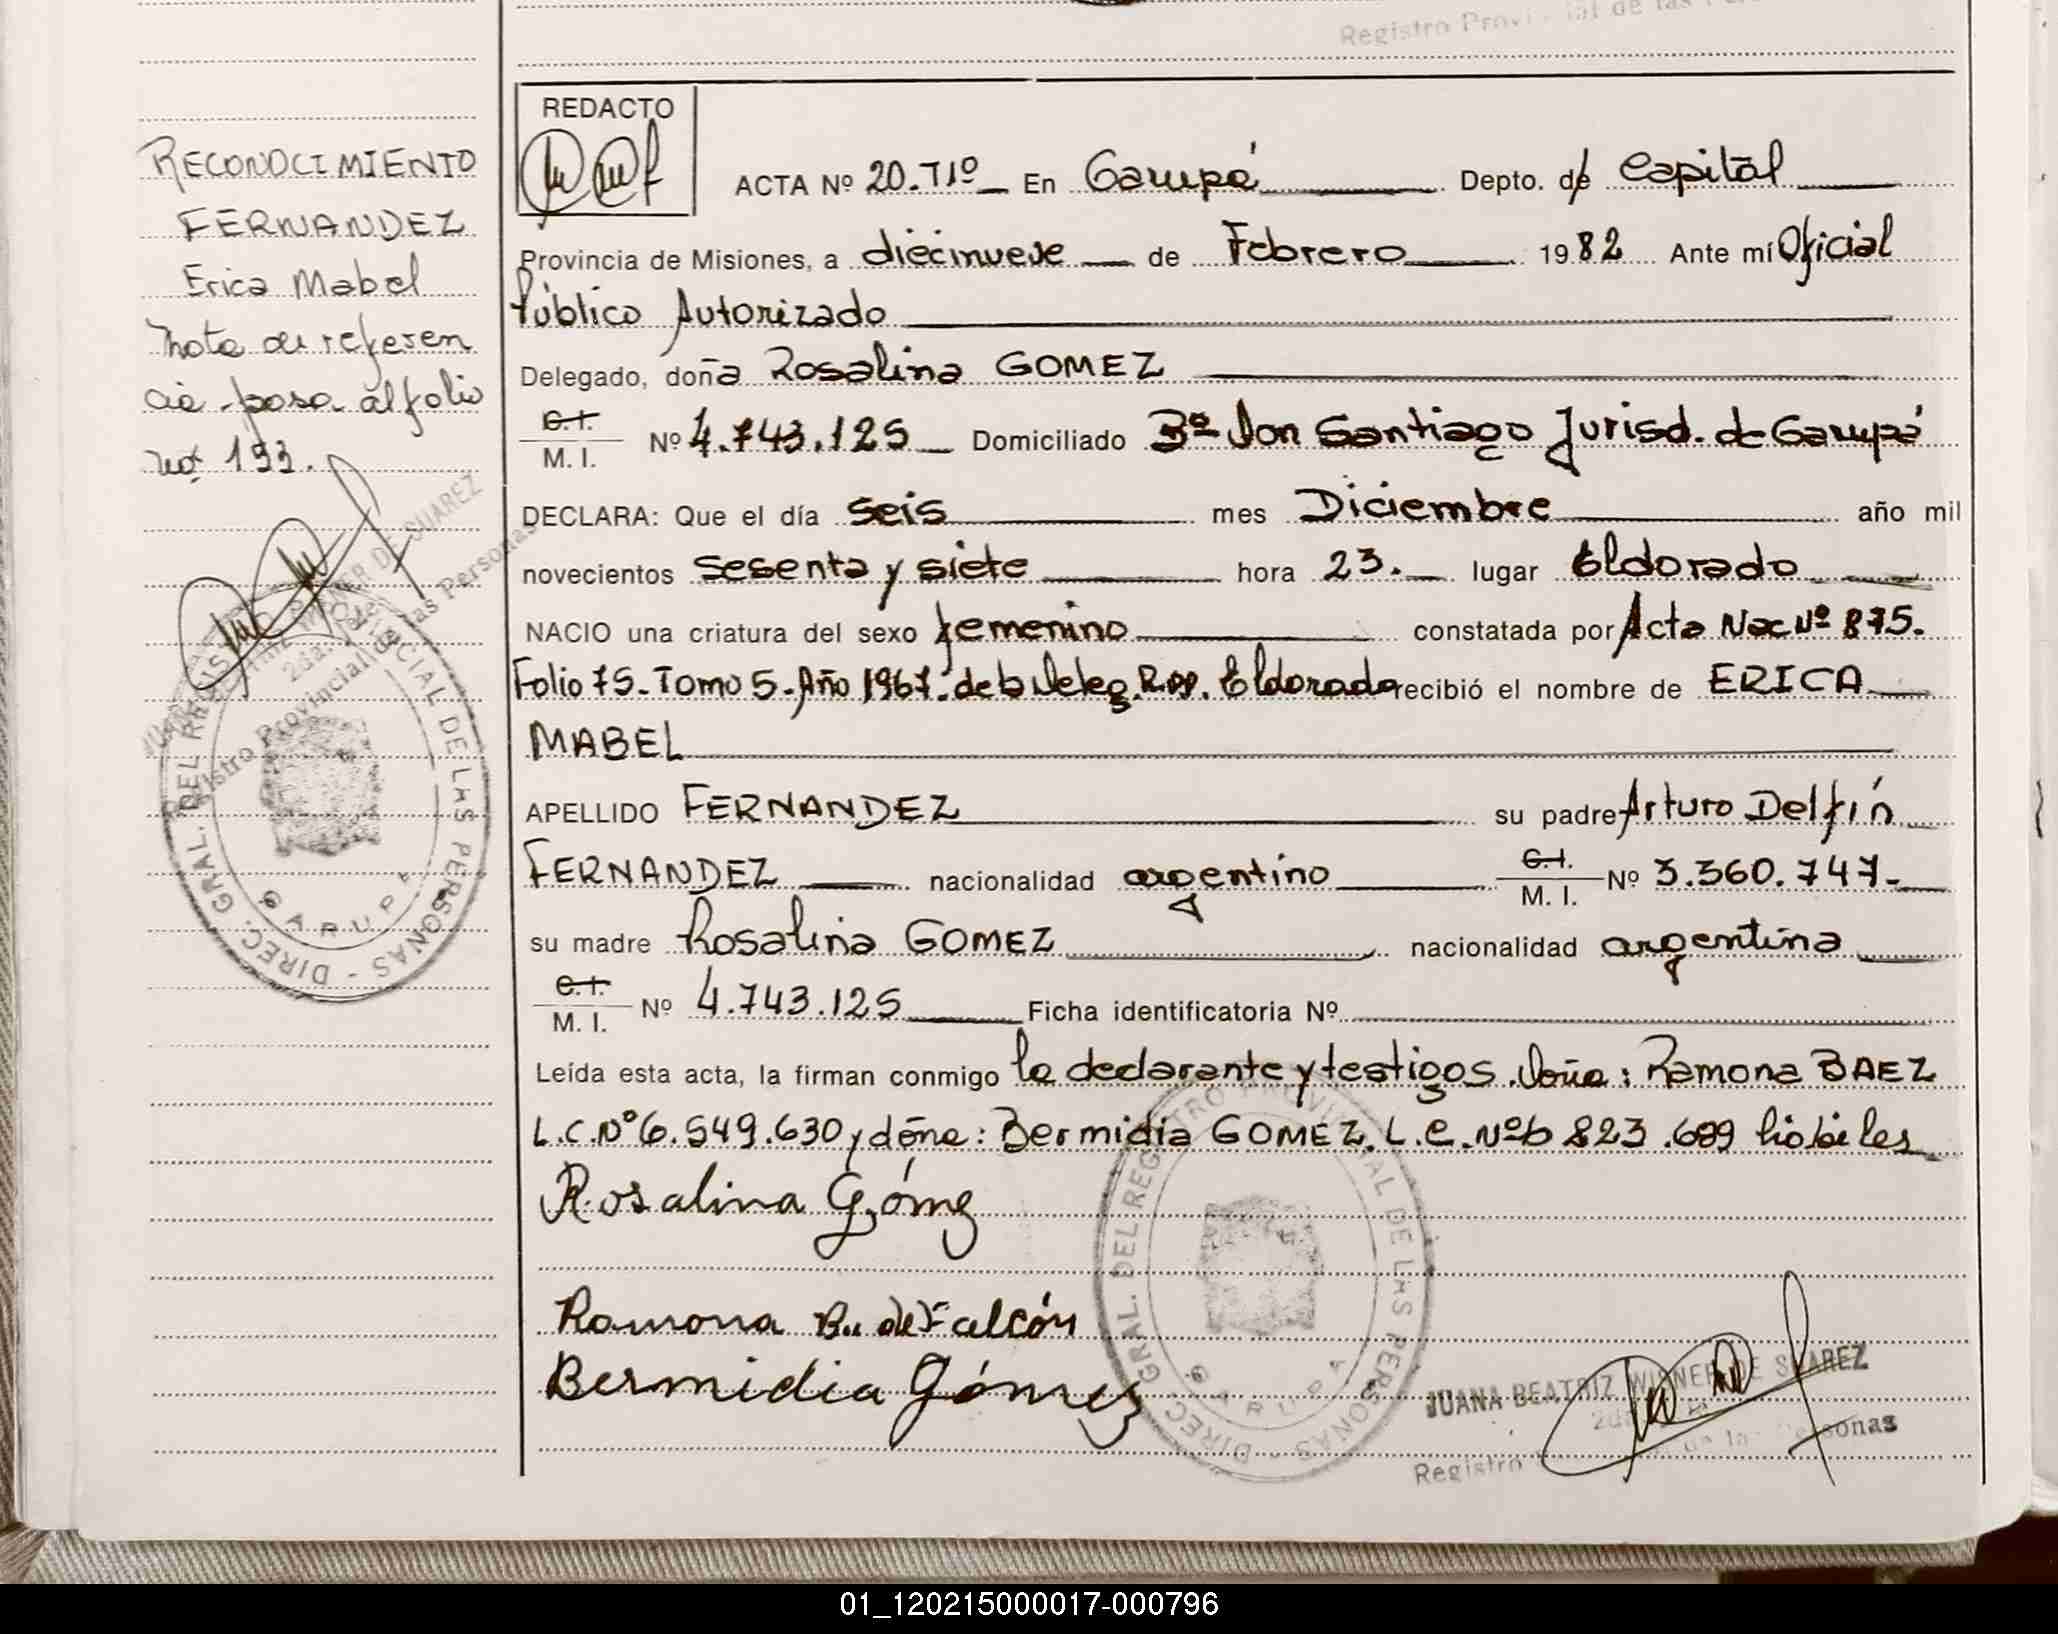 Registro Provincial de las
REDACTO
RECONOCIMIENTO
FERNANDEZ
Erica Mabel
Nota de referen
cia pasa al folio
nº 193.
ACTA Nº 20.Tº1º En Garupá Depto. de Capital
Provincia de Misiones, a diecinueve de Febrero 1982 Ante mí Oficial
Público Autorizado
Delegado, doña Rosalina GOMEZ
C.I.
M. I. Nº 4.743.125 Domiciliado Bº Don Santiago Jurisd. de Garupá
DECLARA: Que el día seis mes Diciembre año mil
novecientos sesenta y siete hora 23. lugar Eldorado
NACIO una criatura del sexo femenino constatada por Acta Nac Nº 875.
Folio 75. Tomo 5. Año 1967. de la Deleg. R.pp. Eldorado recibió el nombre de ERICA
MABEL
APELLIDO FERNANDEZ su padre Arturo Delfín
FERNANDEZ nacionalidad argentino C.I. M. I. Nº 3.360.747.
su madre Rosalina GOMEZ nacionalidad argentina
C.I.
M. I. Nº 4.743.125 Ficha identificatoria Nº
Leída esta acta, la firman conmigo la declarante y testigos. Doña: Ramona BAEZ
L.C.Nº 6.549.630 y doña: Bermidia GOMEZ. L.C. Nº 6 823.699 hábiles
Rosalina Gómez
Ramona B. de Falcón
Bermidia Gómez
JUANA BEATRIZ WINNER DE SUAREZ
Registro de las Personas
DIREC. GRAL. DEL REGISTRO PROVINCIAL DE LAS PERSONAS
GARUPA
01_120215000017-000796